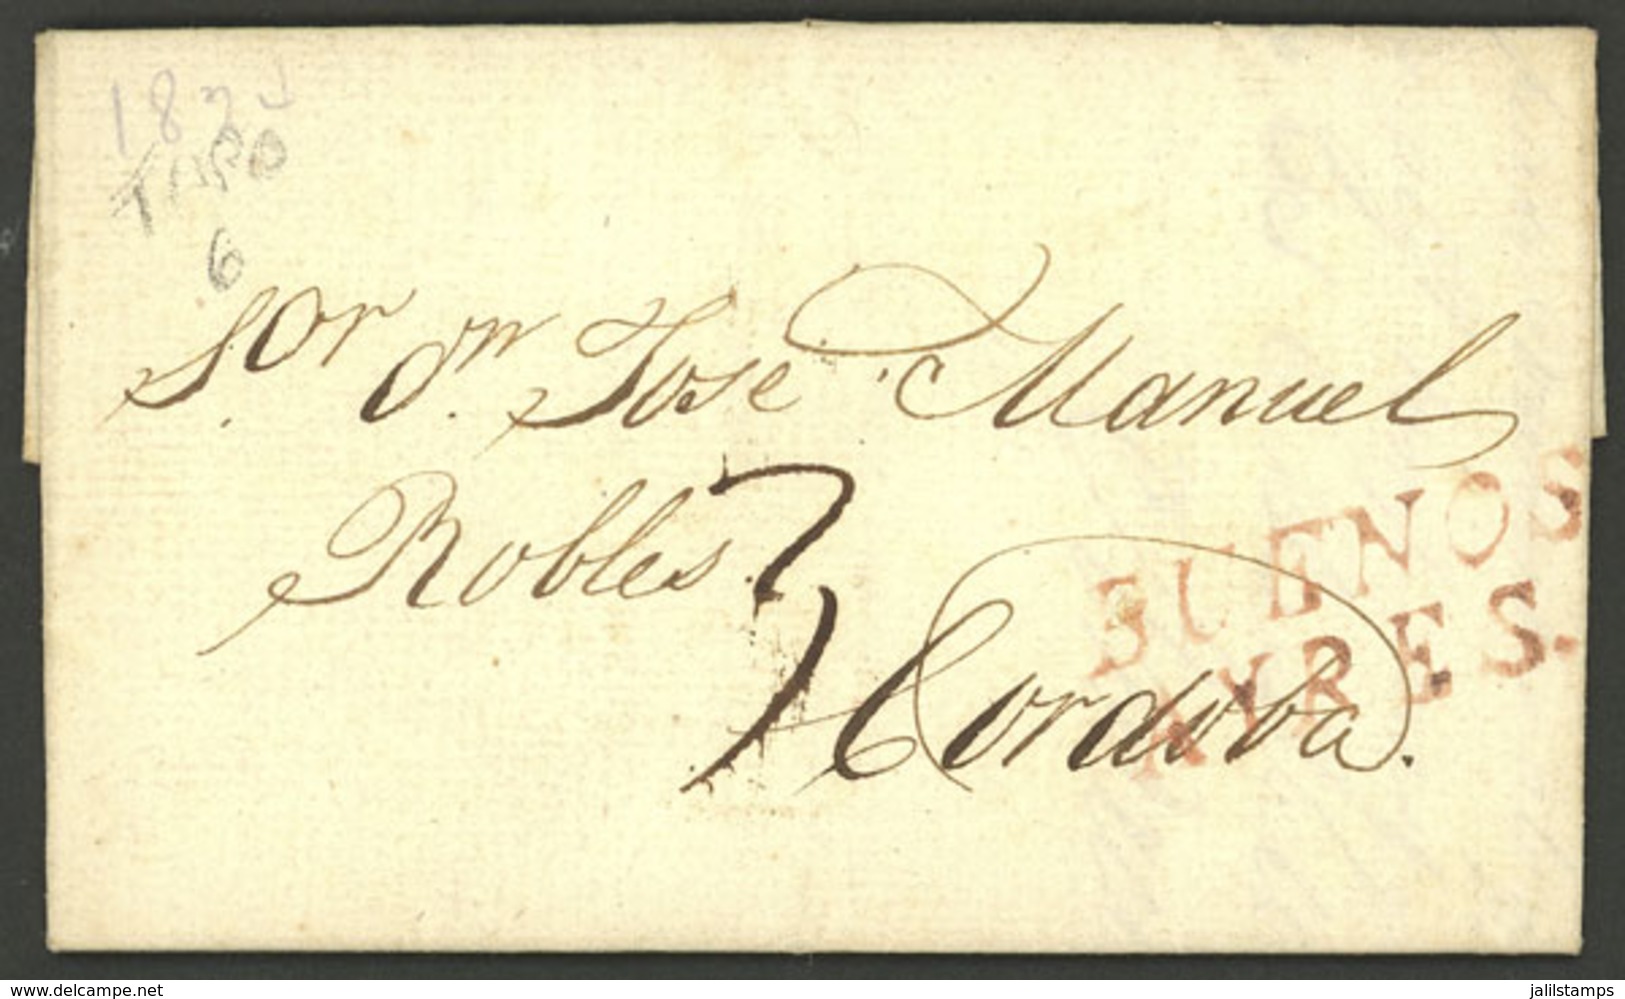 TIPO
6
S.or D.n Jose Manuel
Robles
7
Cordoba.
BUENOS
AYRES.
www.delcampe.net
jalilstamps